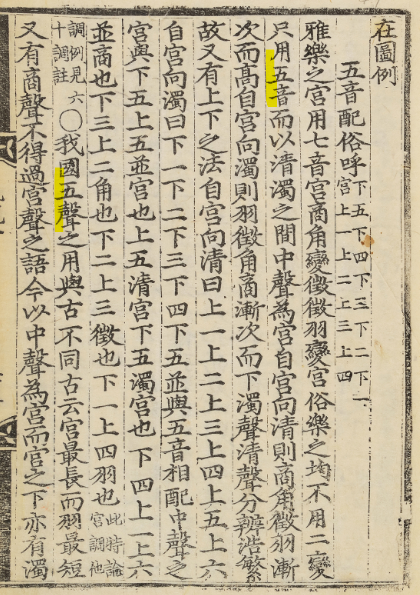 在圖例
五音配俗呼 下五下四下三下二下一
宮上一上二上三上四
雅樂之宮用七音宮商角變徵徵羽變宮俗樂之均不用二變
只用五音而以清濁之間中聲為宮自宮向清則商角徵羽漸
次而高自宮向濁則羽徵角商漸次而下濁聲清聲分辨浩繁
故又有上下之法自宮向清曰上一上二上三上四上五上六
自宮向濁曰下一下二下三下四下五並與五音相配中聲之
宮與下五上五並宮也上五清宮下五濁宮也下四上一上六
並商也下三上二角也下二上三徵也下一上四羽也此時論宮調他
調例見六十調註〇我國五聲之用與古不同古云宮最長而羽最短
又有商聲不得過宮聲之語今以中聲為宮而宮之下亦有濁